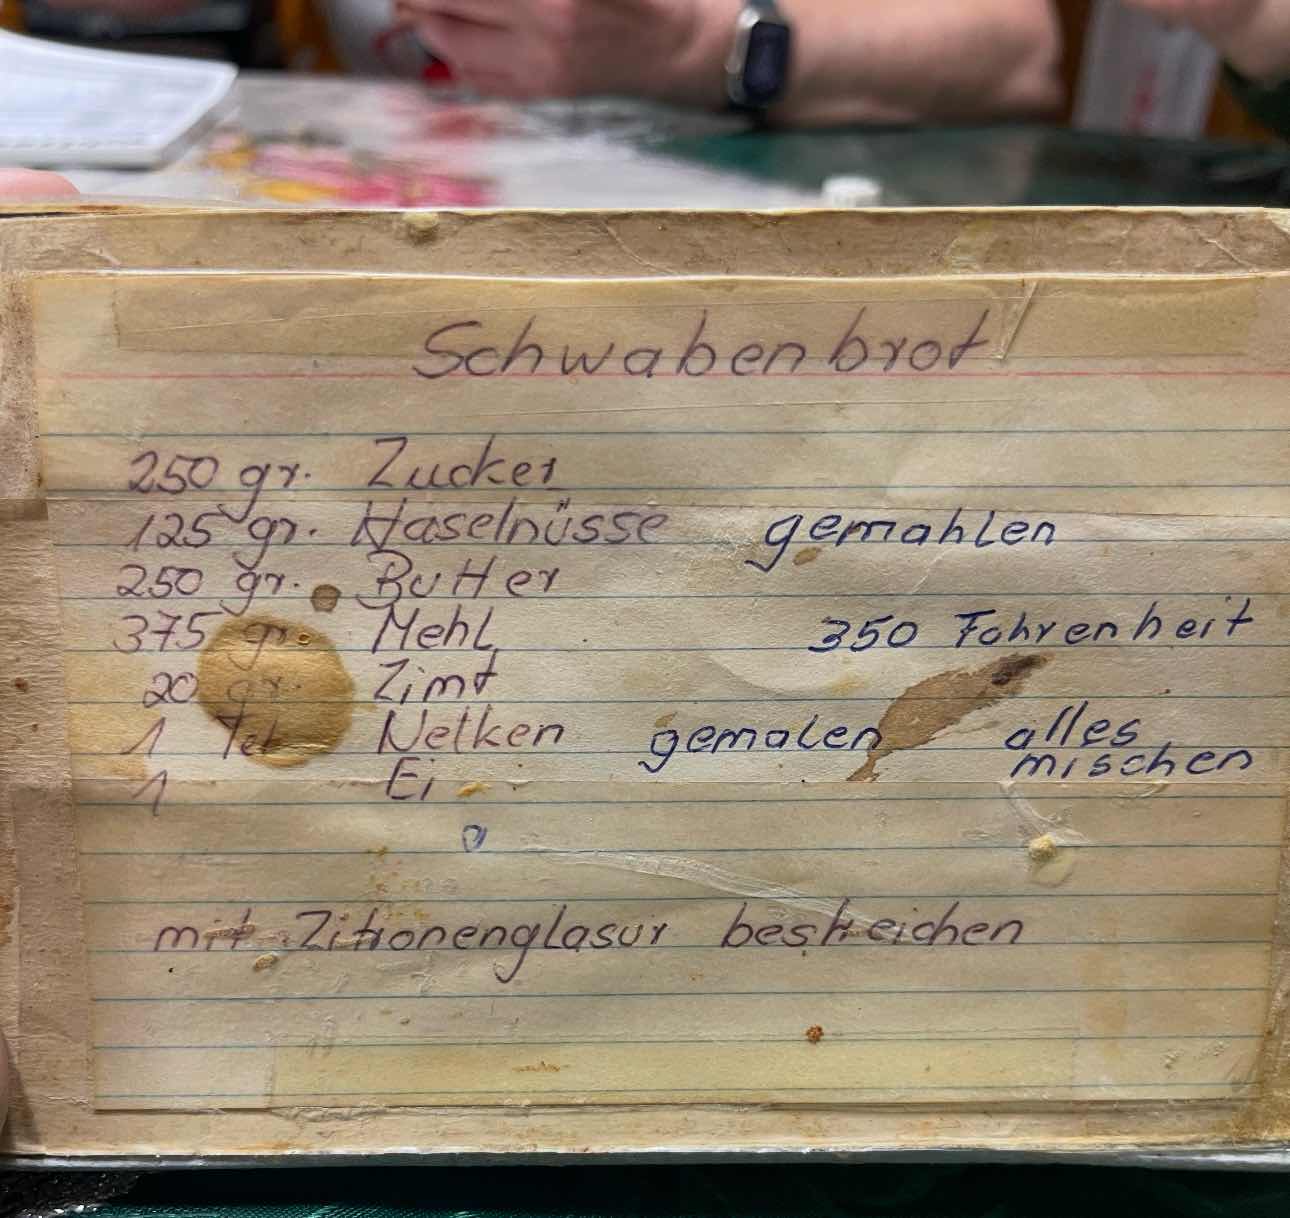 Schwabenbrot
250 gr. Zucker
125 gr. Haselnüsse gemahlen
250 gr. Butter
375 gr. Mehl 350 Fahrenheit
20 gr. Zimt
1 Tel Nelken gemalen alles
mischen
1 Ei
mit Zitronenglasur bestreichen